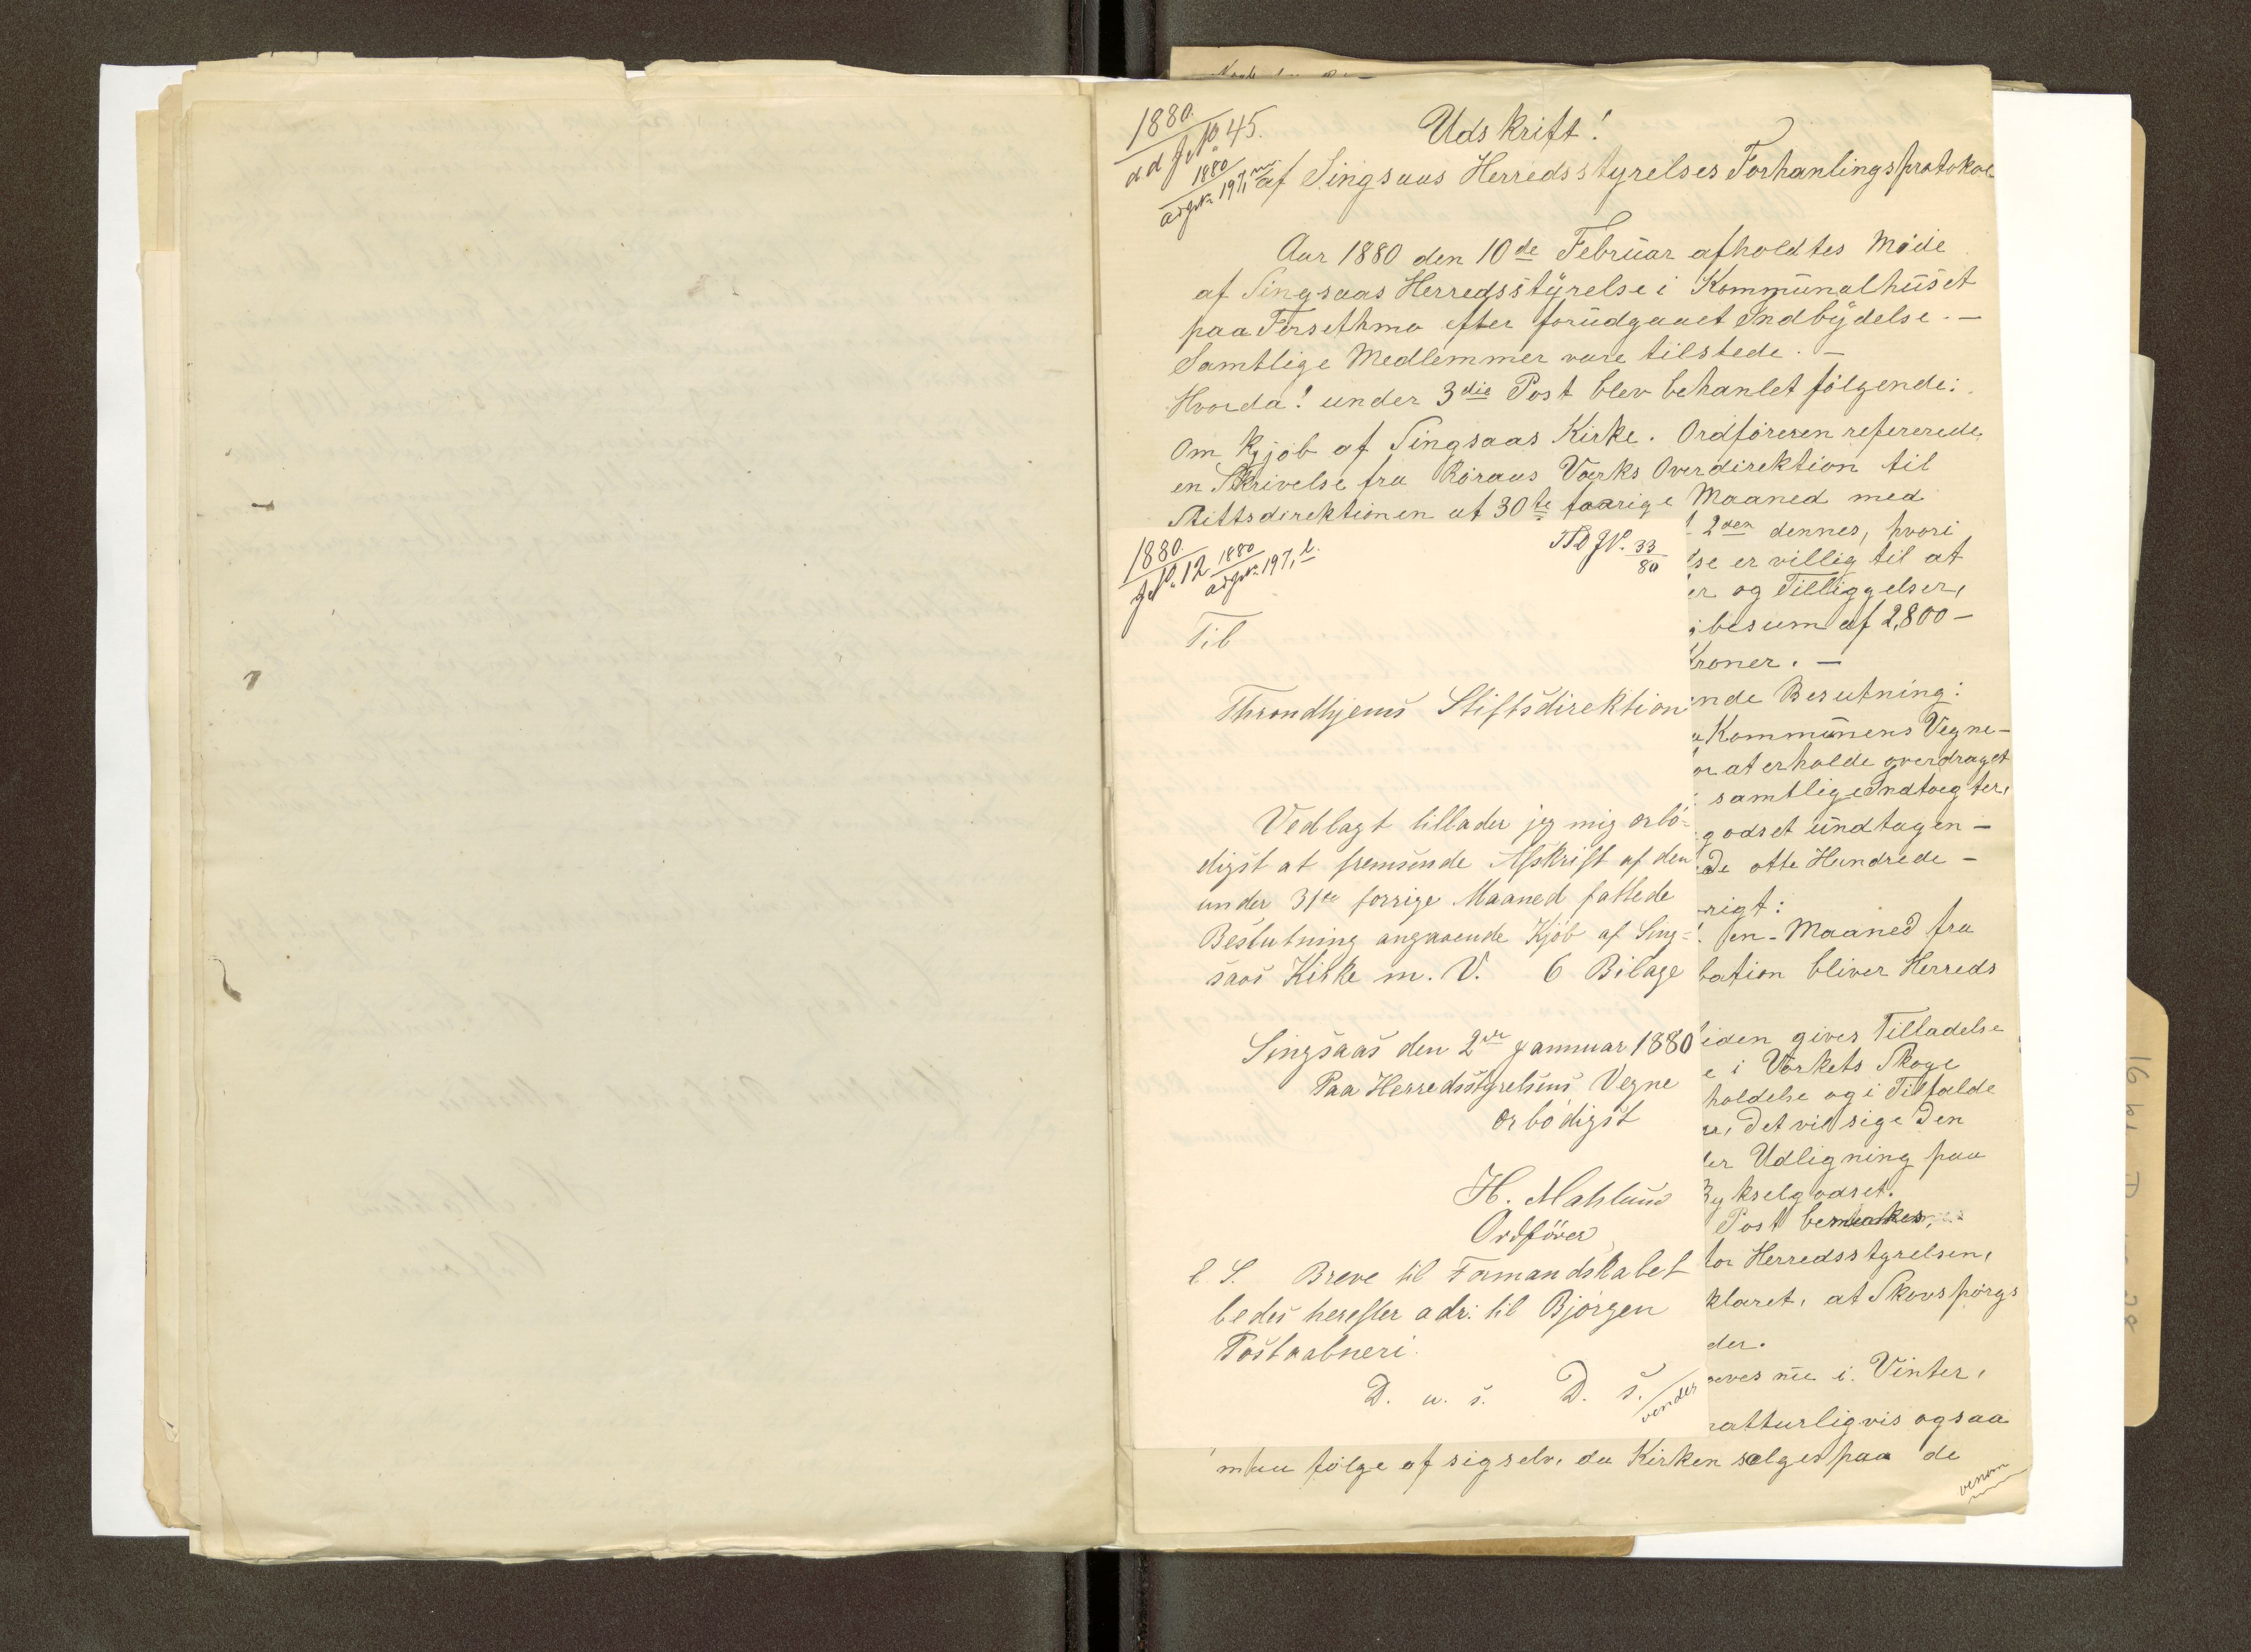 1880.
ad J. No 45.
1880
Udskrift!
af Singsaas Herredsstyrelses Forhanlingsprotokol
Aar 1880 den 10de Februar afholdtes Møde
af Singsaas Herredsstyrelse i Kommunalhuset
paa Forsethmo efter forudgaaet Indbydelse. —
Samtlige Medlemmer vare tilstede. —
Hvorda! under 3die Post blev behanlet følgende:
Om Kjøb af Singsaas Kirke. Ordføreren refererede
en Skrivelse fra Røraas Værks Overdirektion til
Stiftsdirektionen af 30te foorige Maaned med
2den dennes, hvori
lse er villig til at
er og Tilliggelser,
øbesum af 2,800 —
Kroner. —
nde Besutning:
a Kommunens Vegne —
or at erholde overdraget
samtlige Indtægter,
godset undtagen —
de otte Hundrede —
rigt:
en - Maaned fra
bation bliver Herreds
iden gives Tilladelse
e i Værkets Skoge
holdelse og i Tilfælde
, Det vil sige Den
er Udligning paa
Bykselgodset.
Post bemærkes,
for Herredsstyrelsen,
klaret, at Skovspørgs
der.
eves nu i Vinter,
natturligvis ogsaa
maa følge af sig selv, da Kirken sælges paa de
1880.
J. No 12
1880
33
80
Til
Throndhjems Stiftsdirektion
Vedlagt tillader jeg mig ærbø-
digst at fremsende Afskrift af den
under 31te forrige Maaned fattede
Beslutning angaaende Kjøb af Sing-
saas Kirke m. V. 6 Bilage
Singsaas den 2den Januuar 1880
Paa Herredsstyrelsens Vegne
ærbødigst
H. Mahlum
Ordfører
Breve til Formandskabet
bedes herefter adr: til Bjørgen
Postaabneri.
D. u. s. D. s.
vender